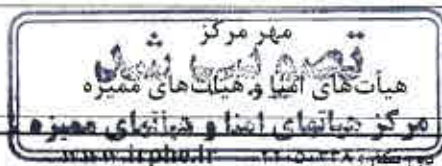 مهر مرکز
تصویب شد
هیأت‌های امنا و هیأت‌های ممیزه
مرکز هیأتهای امنا و هیأتهای ممیزه